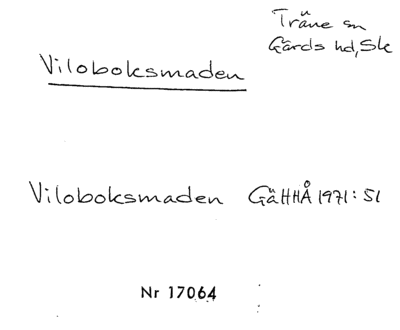 Träne sn
Gärds hd, Sk
Viloboksmaden
Viloboksmaden GäHHÅ 1971: 51
Nr 17064